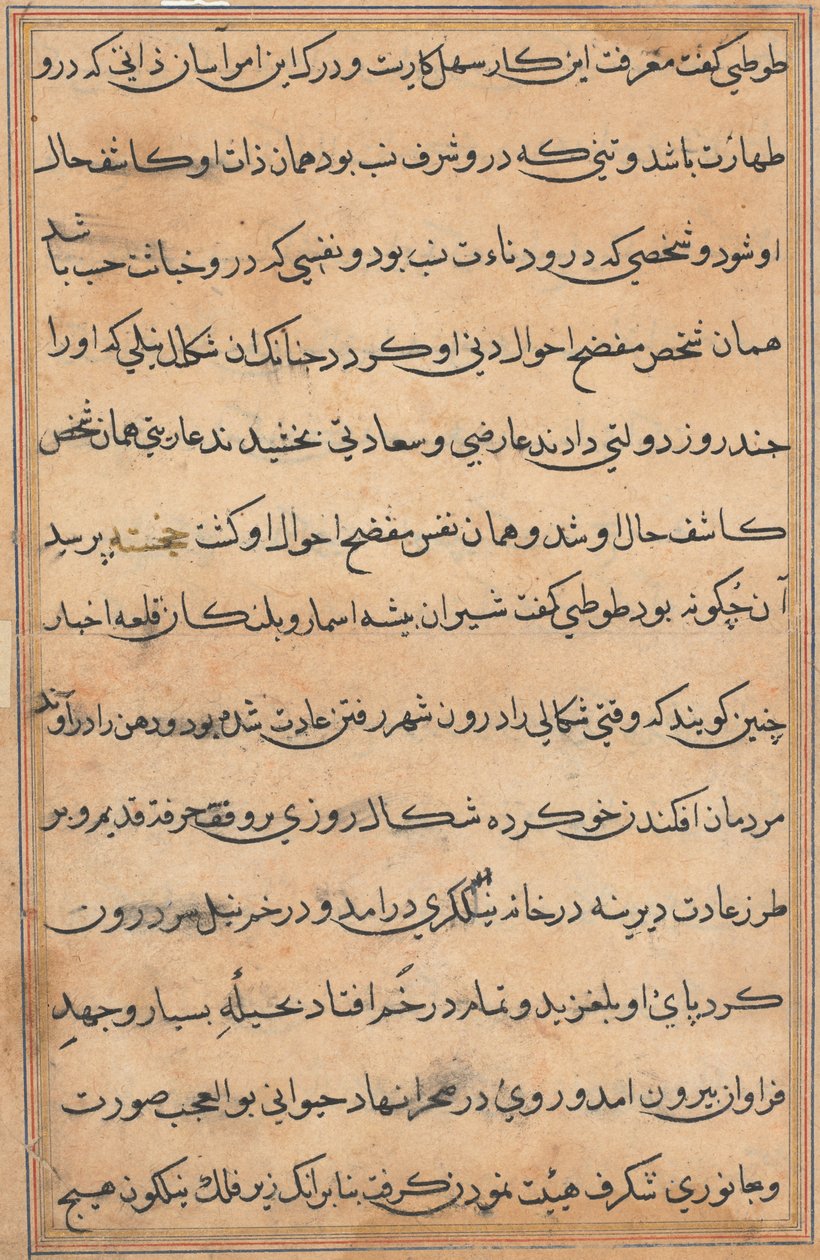 طوطي کفت معرفت این کار سهل کاریت و درک این امر آسان ذاتي که درو
طهارت باشد و تني که درو شرف نسب بود همان ذات او کاشف حال
او شود و شخصي که درو دناءت نسب بود و نفسي که درو خباثت حسب باشد
همان شخص مفضح احوال دني او کردد جنانک ان شکال نیلي که اورا
جند روز دولتي دادند عارضي و سعادتي بخشیدند عاریتي همان شخص
کاشف حال او شد و همان نفس مفضح احوال او کشت خجسته پرسید
آن چکونه بود طوطي کفت شیران بیشه اسمار و بلنکان قلعه اخبار
چنین کویند که وقتي شکالي را درون شهر رفتن عادت شده بود و دهن را در آوند
مردمان افکندن خو کرده شکال روزي بر وفق حرفة قدیم و بر
طرز عادت دیرینه در خانه نیلکري درامد و در خم نیل سر درون
کرد پائ او بلغزید و تمام در خُم افتاد بحیلهِ بسیار و جهدِ
فراوان بیرون امد و روئ در صحرا نهاد حیواني بوالعجب صورت
و جانوري شکرف هیئت نمودن کرفت بنابرانک زیر فلک نیلکون هیج